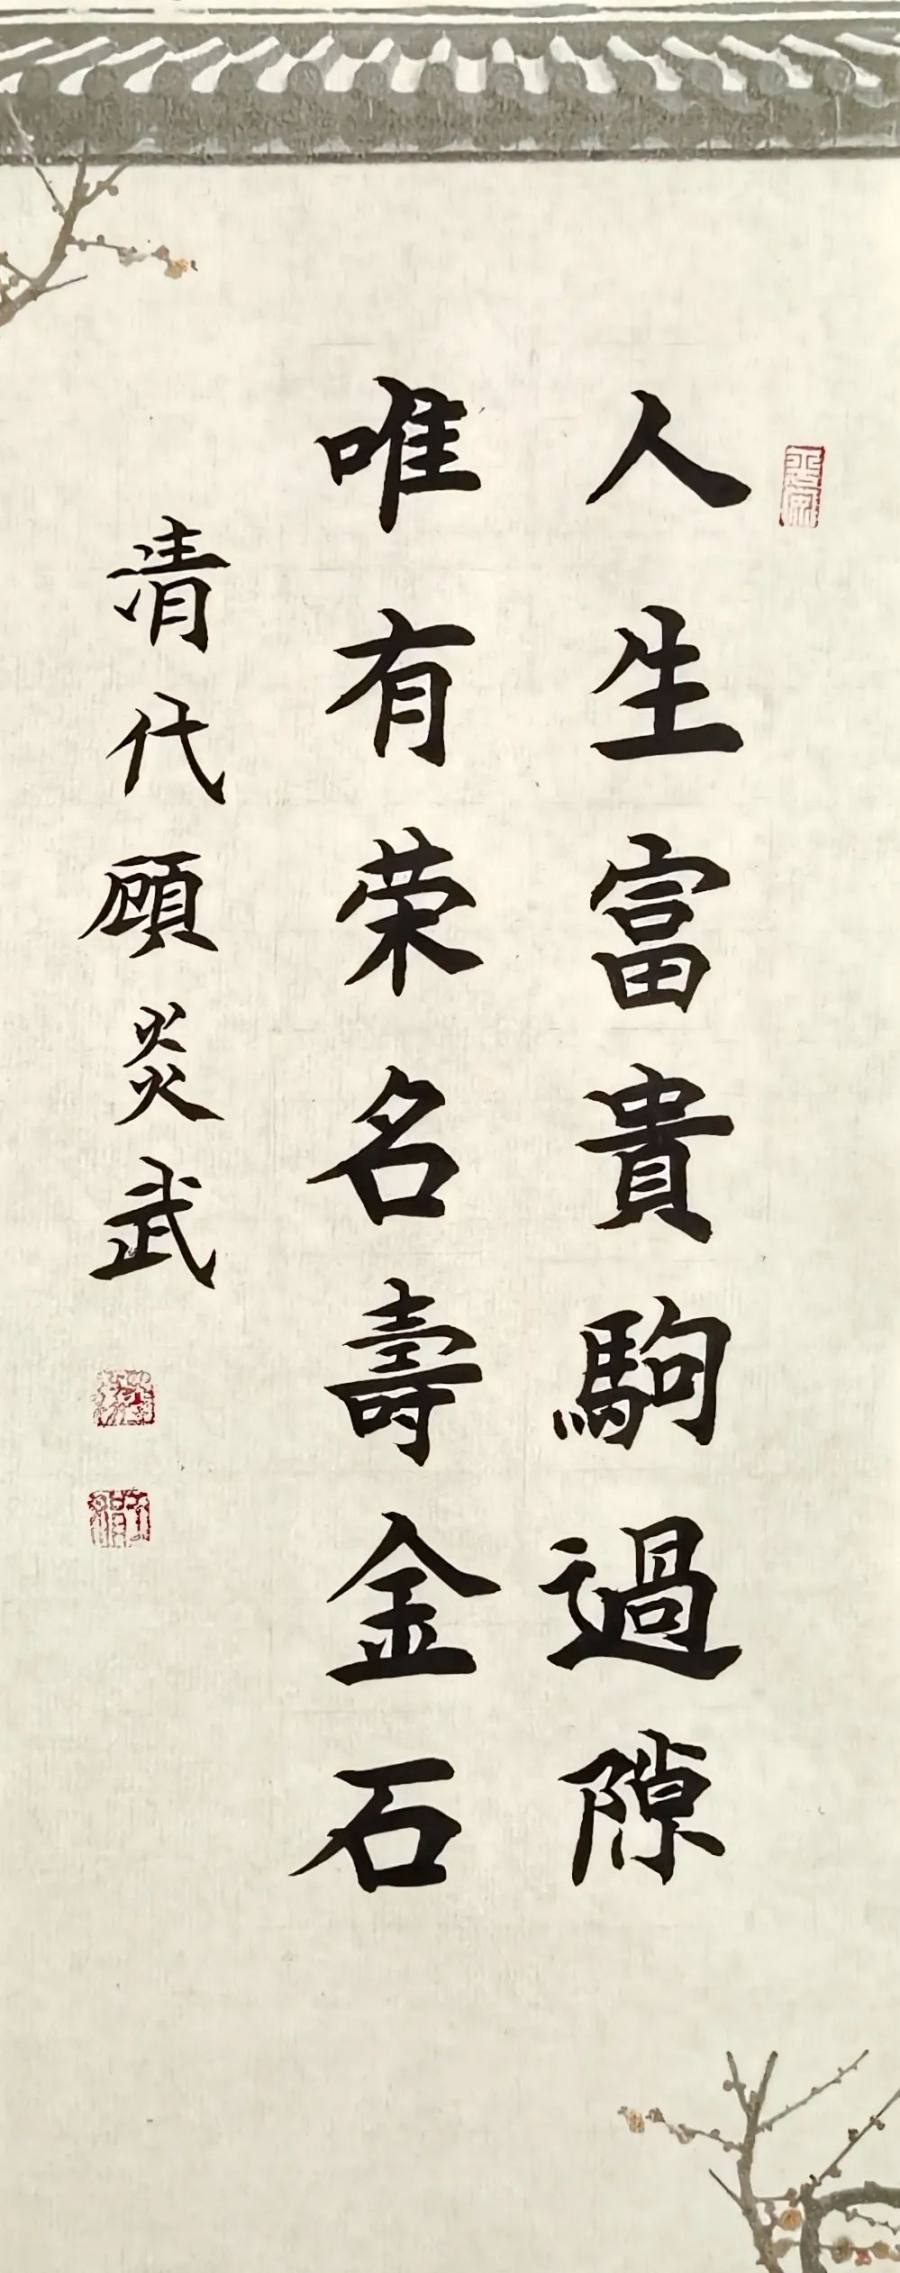 人生富貴駒過隙
唯有荣名壽金石
清代顧炎武